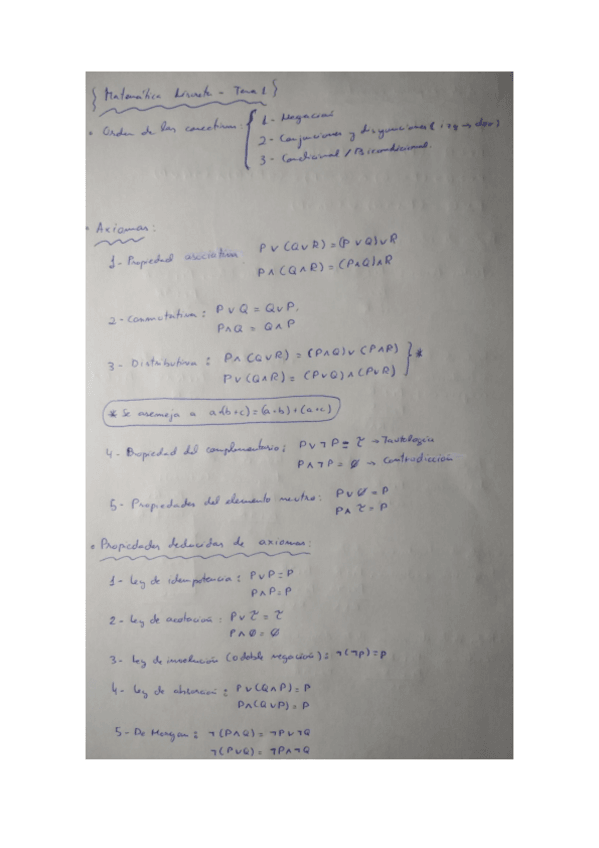 { Matemática Discreta - Tema 1 }
• Orden de las conectivas: { 1 - Negación
2 - Conjunciones y disyunciones (izq → der)
3 - Condicional / Bicondicional.
• Axiomas:
1 - Propiedad asociativa: P ∨ (Q ∨ R) = (P ∨ Q) ∨ R
P ∧ (Q ∧ R) = (P ∧ Q) ∧ R
2 - Conmutativa: P ∨ Q = Q ∨ P.
P ∧ Q = Q ∧ P
3 - Distributiva: P ∧ (Q ∨ R) = (P ∧ Q) ∨ (P ∧ R) } *
P ∨ (Q ∧ R) = (P ∨ Q) ∧ (P ∨ R)
* Se asemeja a a·(b+c) = (a·b) + (a·c)
4 - Propiedad del complementario: P ∨ ¬P = τ → Tautología
P ∧ ¬P = ∅ → Contradicción
5 - Propiedades del elemento neutro: P ∨ ∅ = P
P ∧ τ = P
• Propiedades deducidas de axiomas:
1 - Ley de idempotencia: P ∨ P = P
P ∧ P = P
2 - Ley de acotación: P ∨ τ = τ
P ∧ ∅ = ∅
3 - Ley de involución (o doble negación): ¬(¬P) = P
4 - Ley de absorción: P ∨ (Q ∧ P) = P
P ∧ (Q ∨ P) = P
5 - De Morgan: ¬(P ∧ Q) = ¬P ∨ ¬Q
¬(P ∨ Q) = ¬P ∧ ¬Q